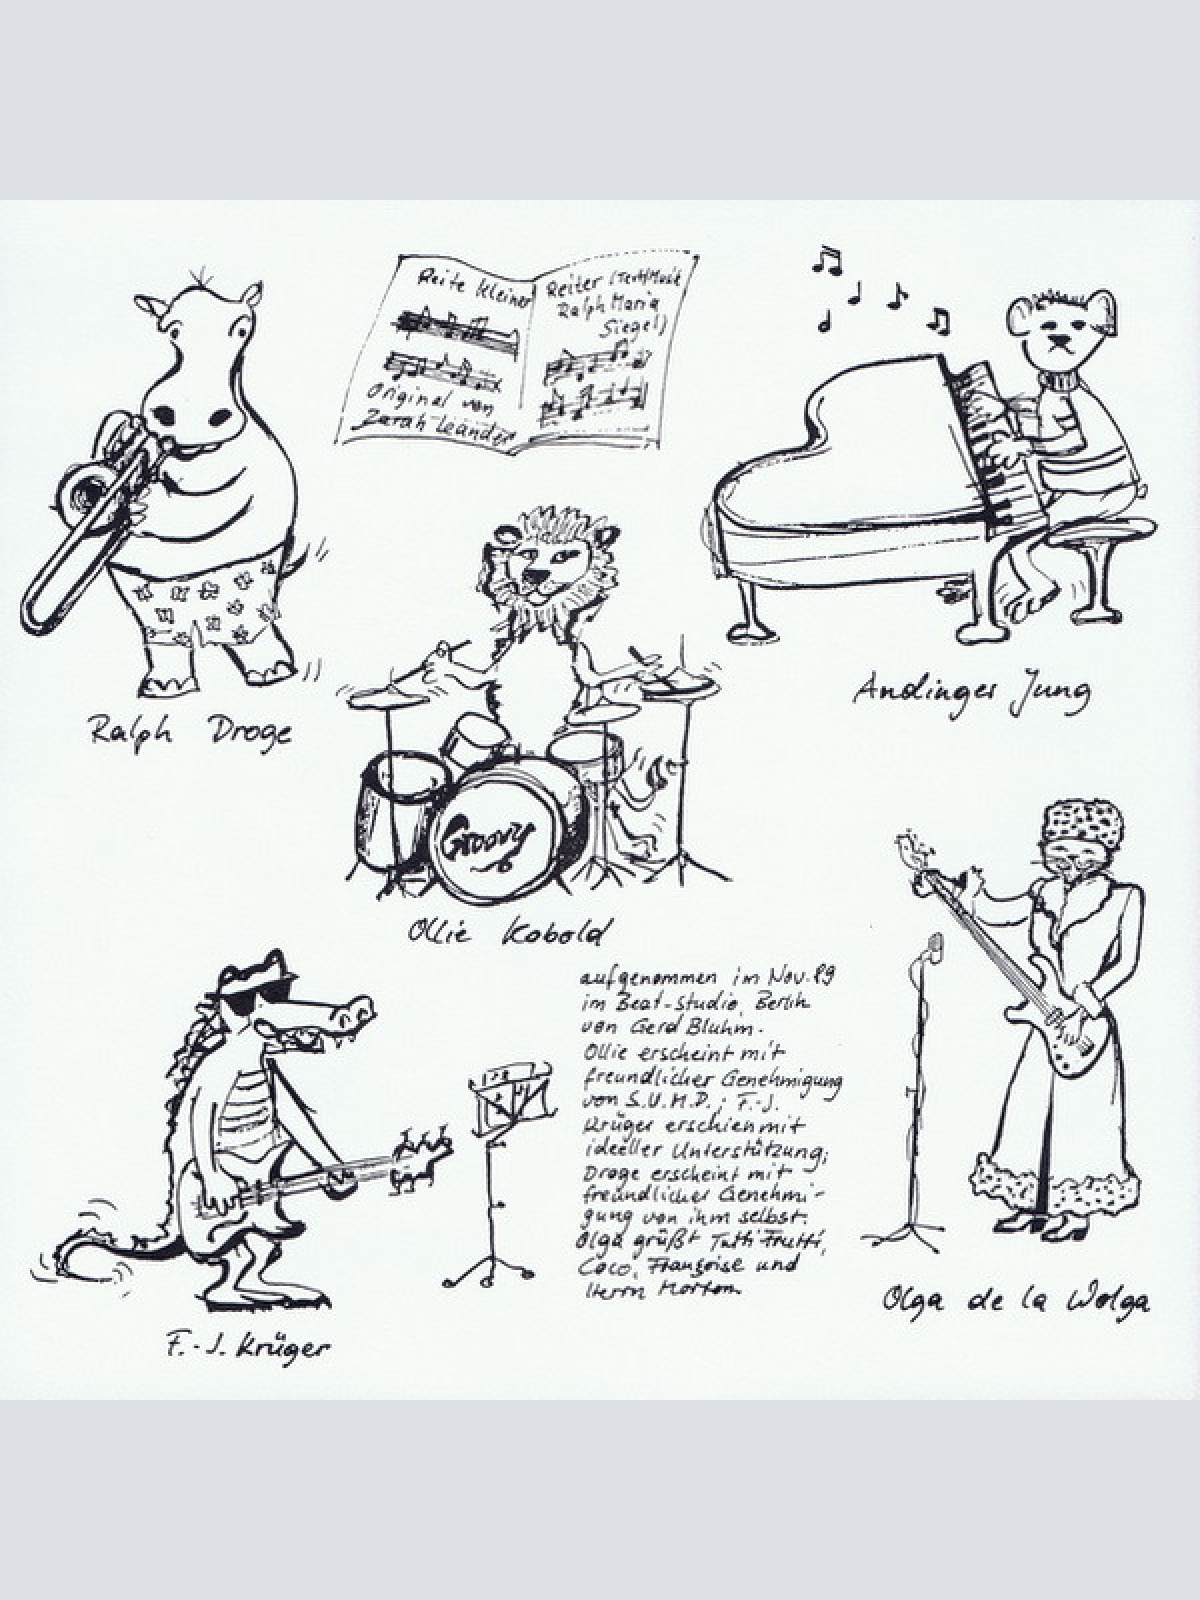 Reite kleiner
Original von
Zarah Leander
Reiter (Text/Musik
Ralph Maria
Siegel)
Ralph Droge
Andinger Jung
Groovy
Ollie Kobold
aufgenommen im Nov. 89
im Beat-Studio, Berlin
von Gerd Bluhm.
Ollie erscheint mit
freundlicher Genehmigung
von S.U.M.D.; F.-J.
Krüger erschien mit
ideeller Unterstützung;
Droge erscheint mit
freundlicher Genehmi-
gung von ihm selbst.
Olga grüßt Tutti Frutti,
Coco, Françoise und
Herrn Morton.
F.-J. Krüger
Olga de la Wolga